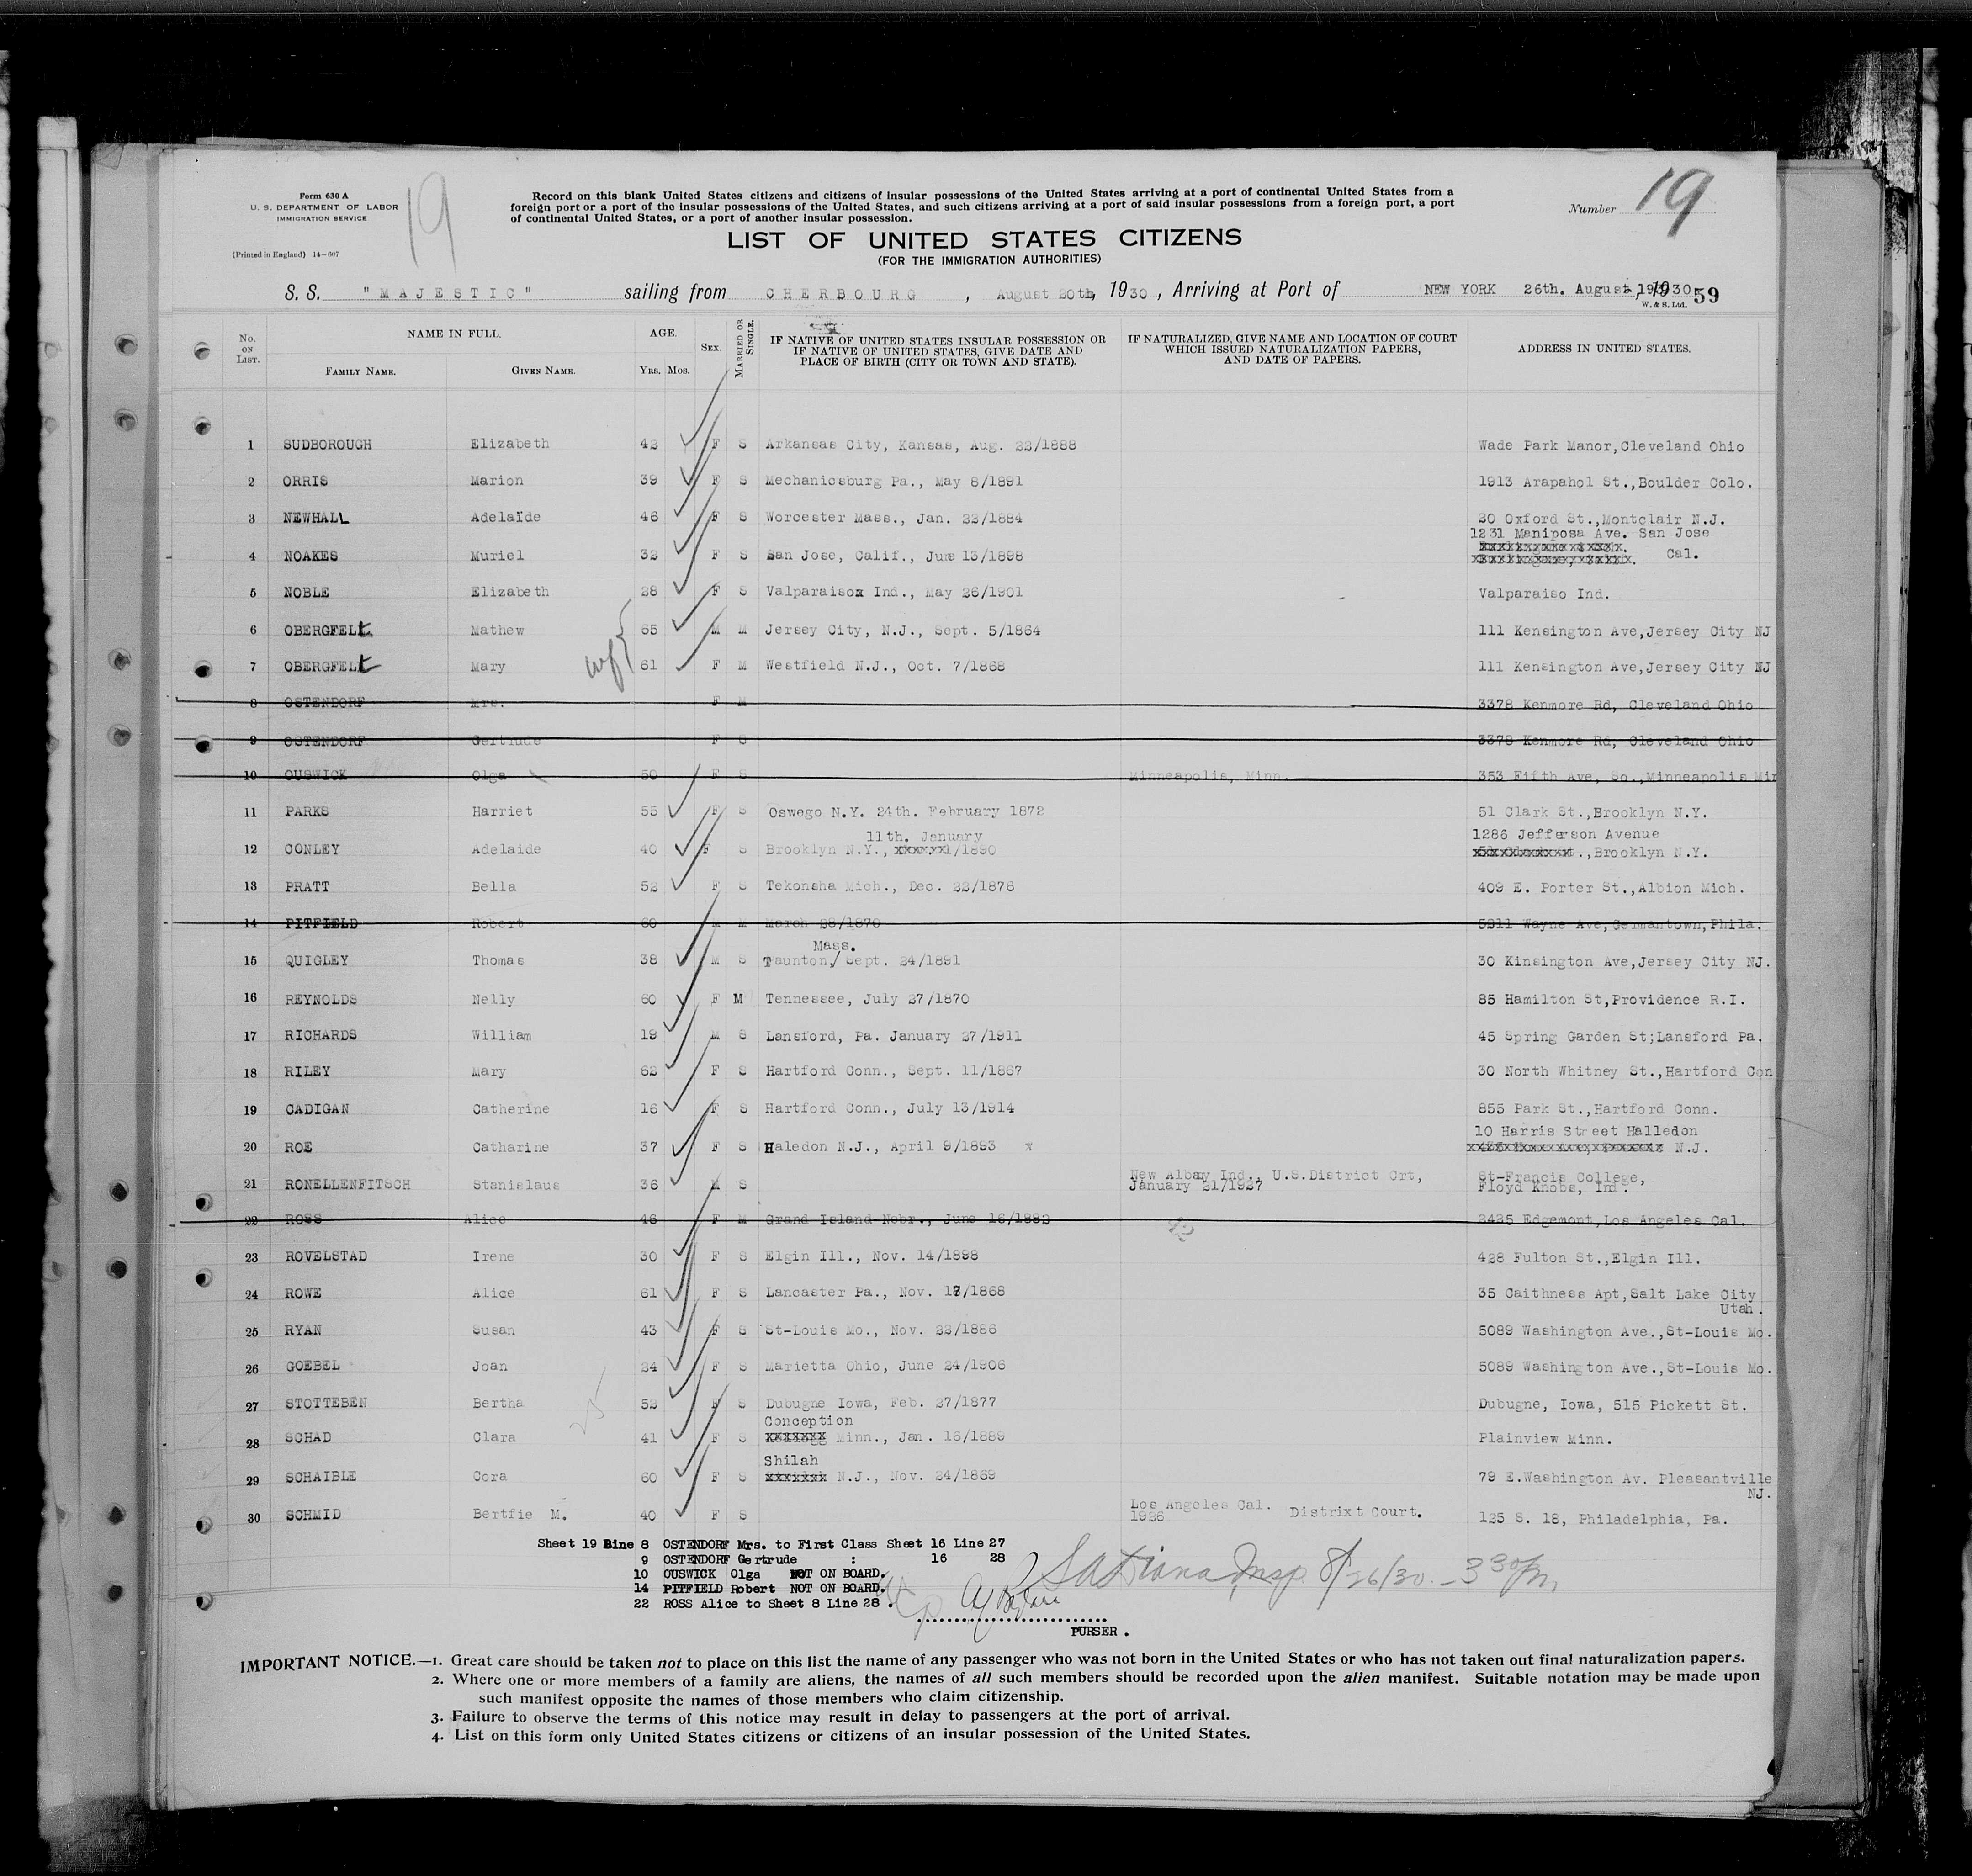 Form 630 A
U. S. DEPARTMENT OF LABOR
IMMIGRATION SERVICE
(Printed in England) 14—607
19
Record on this blank United States citizens and citizens of insular possessions of the United States arriving at a port of continental United States from a
foreign port or a port of the insular possessions of the United States, and such citizens arriving at a port of said insular possessions from a foreign port, a port
of continental United States, or a port of another insular possession.
Number 19
LIST OF UNITED STATES CITIZENS
(FOR THE IMMIGRATION AUTHORITIES)
S. S. "MAJESTIC" sailing from CHERBOURG, August 20th, 1930, Arriving at Port of NEW YORK 26th. August, 1930.
W. & S. Ltd. 59
No. ON LIST. NAME IN FULL. FAMILY NAME. GIVEN NAME. AGE. YRS. MOS. SEX. MARRIED OR SINGLE. IF NATIVE OF UNITED STATES INSULAR POSSESSION OR IF NATIVE OF UNITED STATES, GIVE DATE AND PLACE OF BIRTH (CITY OR TOWN AND STATE). IF NATURALIZED, GIVE NAME AND LOCATION OF COURT WHICH ISSUED NATURALIZATION PAPERS, AND DATE OF PAPERS. ADDRESS IN UNITED STATES.
1 SUDBOROUGH Elizabeth 42 F S Arkansas City, Kansas, Aug. 22/1888 Wade Park Manor,Cleveland Ohio
2 ORRIS Marion 39 F S Mechanicsburg Pa., May 8/1891 1913 Arapahol St.,Boulder Colo.
3 NEWHALL Adelaïde 46 F S Worcester Mass., Jan. 22/1884 20 Oxford St.,Montclair N.J.
1231 Maniposa Ave. San Jose
4 NOAKES Muriel 32 F S San Jose, Calif., June 13/1898 Cal.
5 NOBLE Elizabeth 28 F S Valparaisox Ind., May 26/1901 Valparaiso Ind.
6 OBERGFELt Mathew 65 M M Jersey City, N.J., Sept. 5/1864 111 Kensington Ave,Jersey City NJ
7 OBERGFELt Mary 61 F M Westfield N.J., Oct. 7/1868 111 Kensington Ave,Jersey City NJ
8 OSTENDORF Mrs. F M 3378 Kenmore Rd, Cleveland Ohio
9 OSTENDORF Gertrude F S 3378 Kenmore Rd, Cleveland Ohio
10 OUSWICK Olga 50 F S Minneapolis, Minn. 353 Fifth Ave, So.,Minneapolis Min
11 PARKS Harriet 55 F S Oswego N.Y. 24th. February 1872 51 Clark St.,Brooklyn N.Y.
11th. January 1286 Jefferson Avenue
12 CONLEY Adelaide 40 F S Brooklyn N.Y., /1890 Brooklyn N.Y.
13 PRATT Bella 52 F S Tekonsha Mich., Dec. 22/1876 409 E. Porter St.,Albion Mich.
14 PITFIELD Robert 60 M M March 28/1870 5211 Wayne Ave,Germantown,Phila.
Mass.
15 QUIGLEY Thomas 38 M S Taunton/ Sept. 24/1891 30 Kinsington Ave,Jersey City NJ.
16 REYNOLDS Nelly 60 F M Tennessee, July 27/1870 85 Hamilton St,Providence R.I.
17 RICHARDS William 19 M S Lansford, Pa. January 27/1911 45 Spring Garden St;Lansford Pa.
18 RILEY Mary 62 F S Hartford Conn., Sept. 11/1867 30 North Whitney St.,Hartford Con
19 CADIGAN Catherine 16 F S Hartford Conn., July 13/1914 855 Park St.,Hartford Conn.
10 Harris Street Halledon
20 ROE Catharine 37 F S Haledon N.J., April 9/1893 x N.J.
21 RONELLENFITSCH Stanislaus 36 M S New Albany Ind., U.S.District Crt, January 21/1927 St-Francis College, Floyd Knobs, Ind.
22 ROSS Alice 48 F M Grand Island Nebr., June 16/1882 2435 Edgemont,Los Angeles Cal.
23 ROVELSTAD Irene 30 F S Elgin Ill., Nov. 14/1898 428 Fulton St.,Elgin Ill.
24 ROWE Alice 61 F S Lancaster Pa., Nov. /1868 35 Caithness Apt,Salt Lake City
Utah.
25 RYAN Susan 43 F S St-Louis Mo., Nov. 22/1886 5089 Washington Ave.,St-Louis Mo.
26 GOEBEL Joan 24 F S Marietta Ohio, June 24/1906 5089 Washington Ave.,St-Louis Mo.
27 STOTTEBEN Bertha 52 F S Dubugne Iowa, Feb. 27/1877 Dubugne, Iowa, 515 Pickett St.
Conception
28 SCHAD Clara 41 F S Minn., Jan. 16/1889 Plainview Minn.
Shilah
29 SCHAIBLE Cora 60 F S N.J., Nov. 24/1869 79 E.Washington Av. Pleasantville
NJ.
30 SCHMID Bertfie M. 40 F S Los Angeles Cal. Distrixt Court. 1926 125 S. 18, Philadelphia, Pa.
Sheet 19 Line 8 OSTENDORF Mrs. to First Class Sheet 16 Line 27
9 OSTENDORF Gertrude : 16 28
10 OUSWICK Olga NOT ON BOARD.
14 PITFIELD Robert NOT ON BOARD.
22 ROSS Alice to Sheet 8 Line 28 .
Insp. 8/26/30 - 3 30 pm
PURSER .
IMPORTANT NOTICE.—1. Great care should be taken not to place on this list the name of any passenger who was not born in the United States or who has not taken out final naturalization papers.
2. Where one or more members of a family are aliens, the names of all such members should be recorded upon the alien manifest. Suitable notation may be made upon
such manifest opposite the names of those members who claim citizenship.
3. Failure to observe the terms of this notice may result in delay to passengers at the port of arrival.
4. List on this form only United States citizens or citizens of an insular possession of the United States.